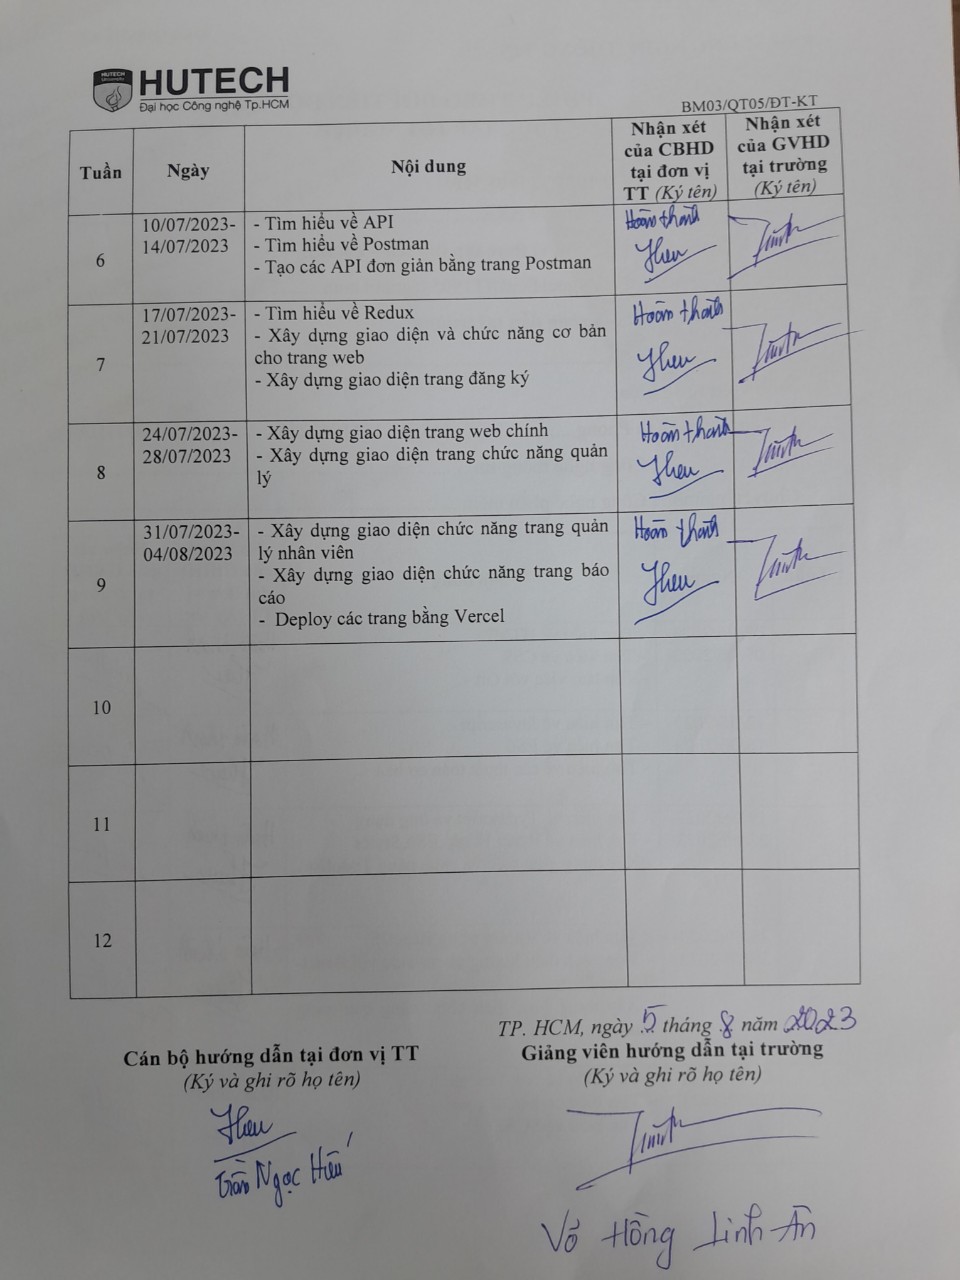 HUTECH
University
HUTECH
Đại học Công nghệ Tp.HCM
BM03/QT05/ĐT-KT
Tuần
Ngày
Nội dung
Nhận xét
của CBHD
tại đơn vị
TT (Ký tên)
Nhận xét
của GVHD
tại trường
(Ký tên)
6
10/07/2023-
14/07/2023
- Tìm hiểu về API
- Tìm hiểu về Postman
- Tạo các API đơn giản bằng trang Postman
Hoàn thành
Hieu
7
17/07/2023-
21/07/2023
- Tìm hiểu về Redux
- Xây dựng giao diện và chức năng cơ bản
cho trang web
- Xây dựng giao diện trang đăng ký
Hoàn thành
Hieu
8
24/07/2023-
28/07/2023
- Xây dựng giao diện trang web chính
- Xây dựng giao diện trang chức năng quản
lý
Hoàn thành
Hieu
9
31/07/2023-
04/08/2023
- Xây dựng giao diện chức năng trang quản
lý nhân viên
- Xây dựng giao diện chức năng trang báo
cáo
- Deploy các trang bằng Vercel
Hoàn thành
Hieu
10
11
12
TP. HCM, ngày 5 tháng 8 năm 2023
Cán bộ hướng dẫn tại đơn vị TT
(Ký và ghi rõ họ tên)
Hieu
Trần Ngọc Hiếu
Giảng viên hướng dẫn tại trường
(Ký và ghi rõ họ tên)
Võ Hồng Linh Ân